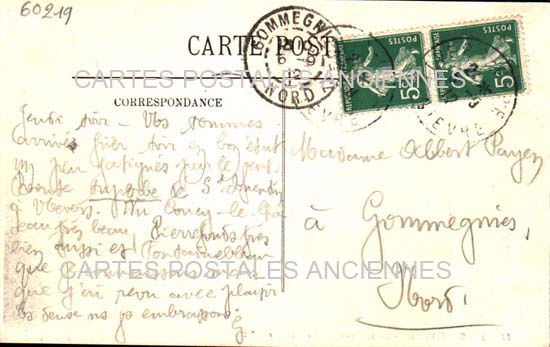 60219
CARTE POSTALE
GOMMEGNIES
NORD
POSTES
5c
POSTES
5c
NIEVRE
CARTES POSTALES ANCIENNES
CORRESPONDANCE
Jeudi soir - Nous sommes
arrivés hier soir en bon état
un peu fatigués par le vent.
Route superbe de St Quentin
à Nevers. Vu Coucy-le-Ch
très beau, Pierrefonds très
bien aussi et Fontainebleau
que
que j'ai revu avec plaisir
embrassons
G.
Madame Albert Payen
à Gommegnies,
Nord.
CARTES POSTALES ANCIENNES